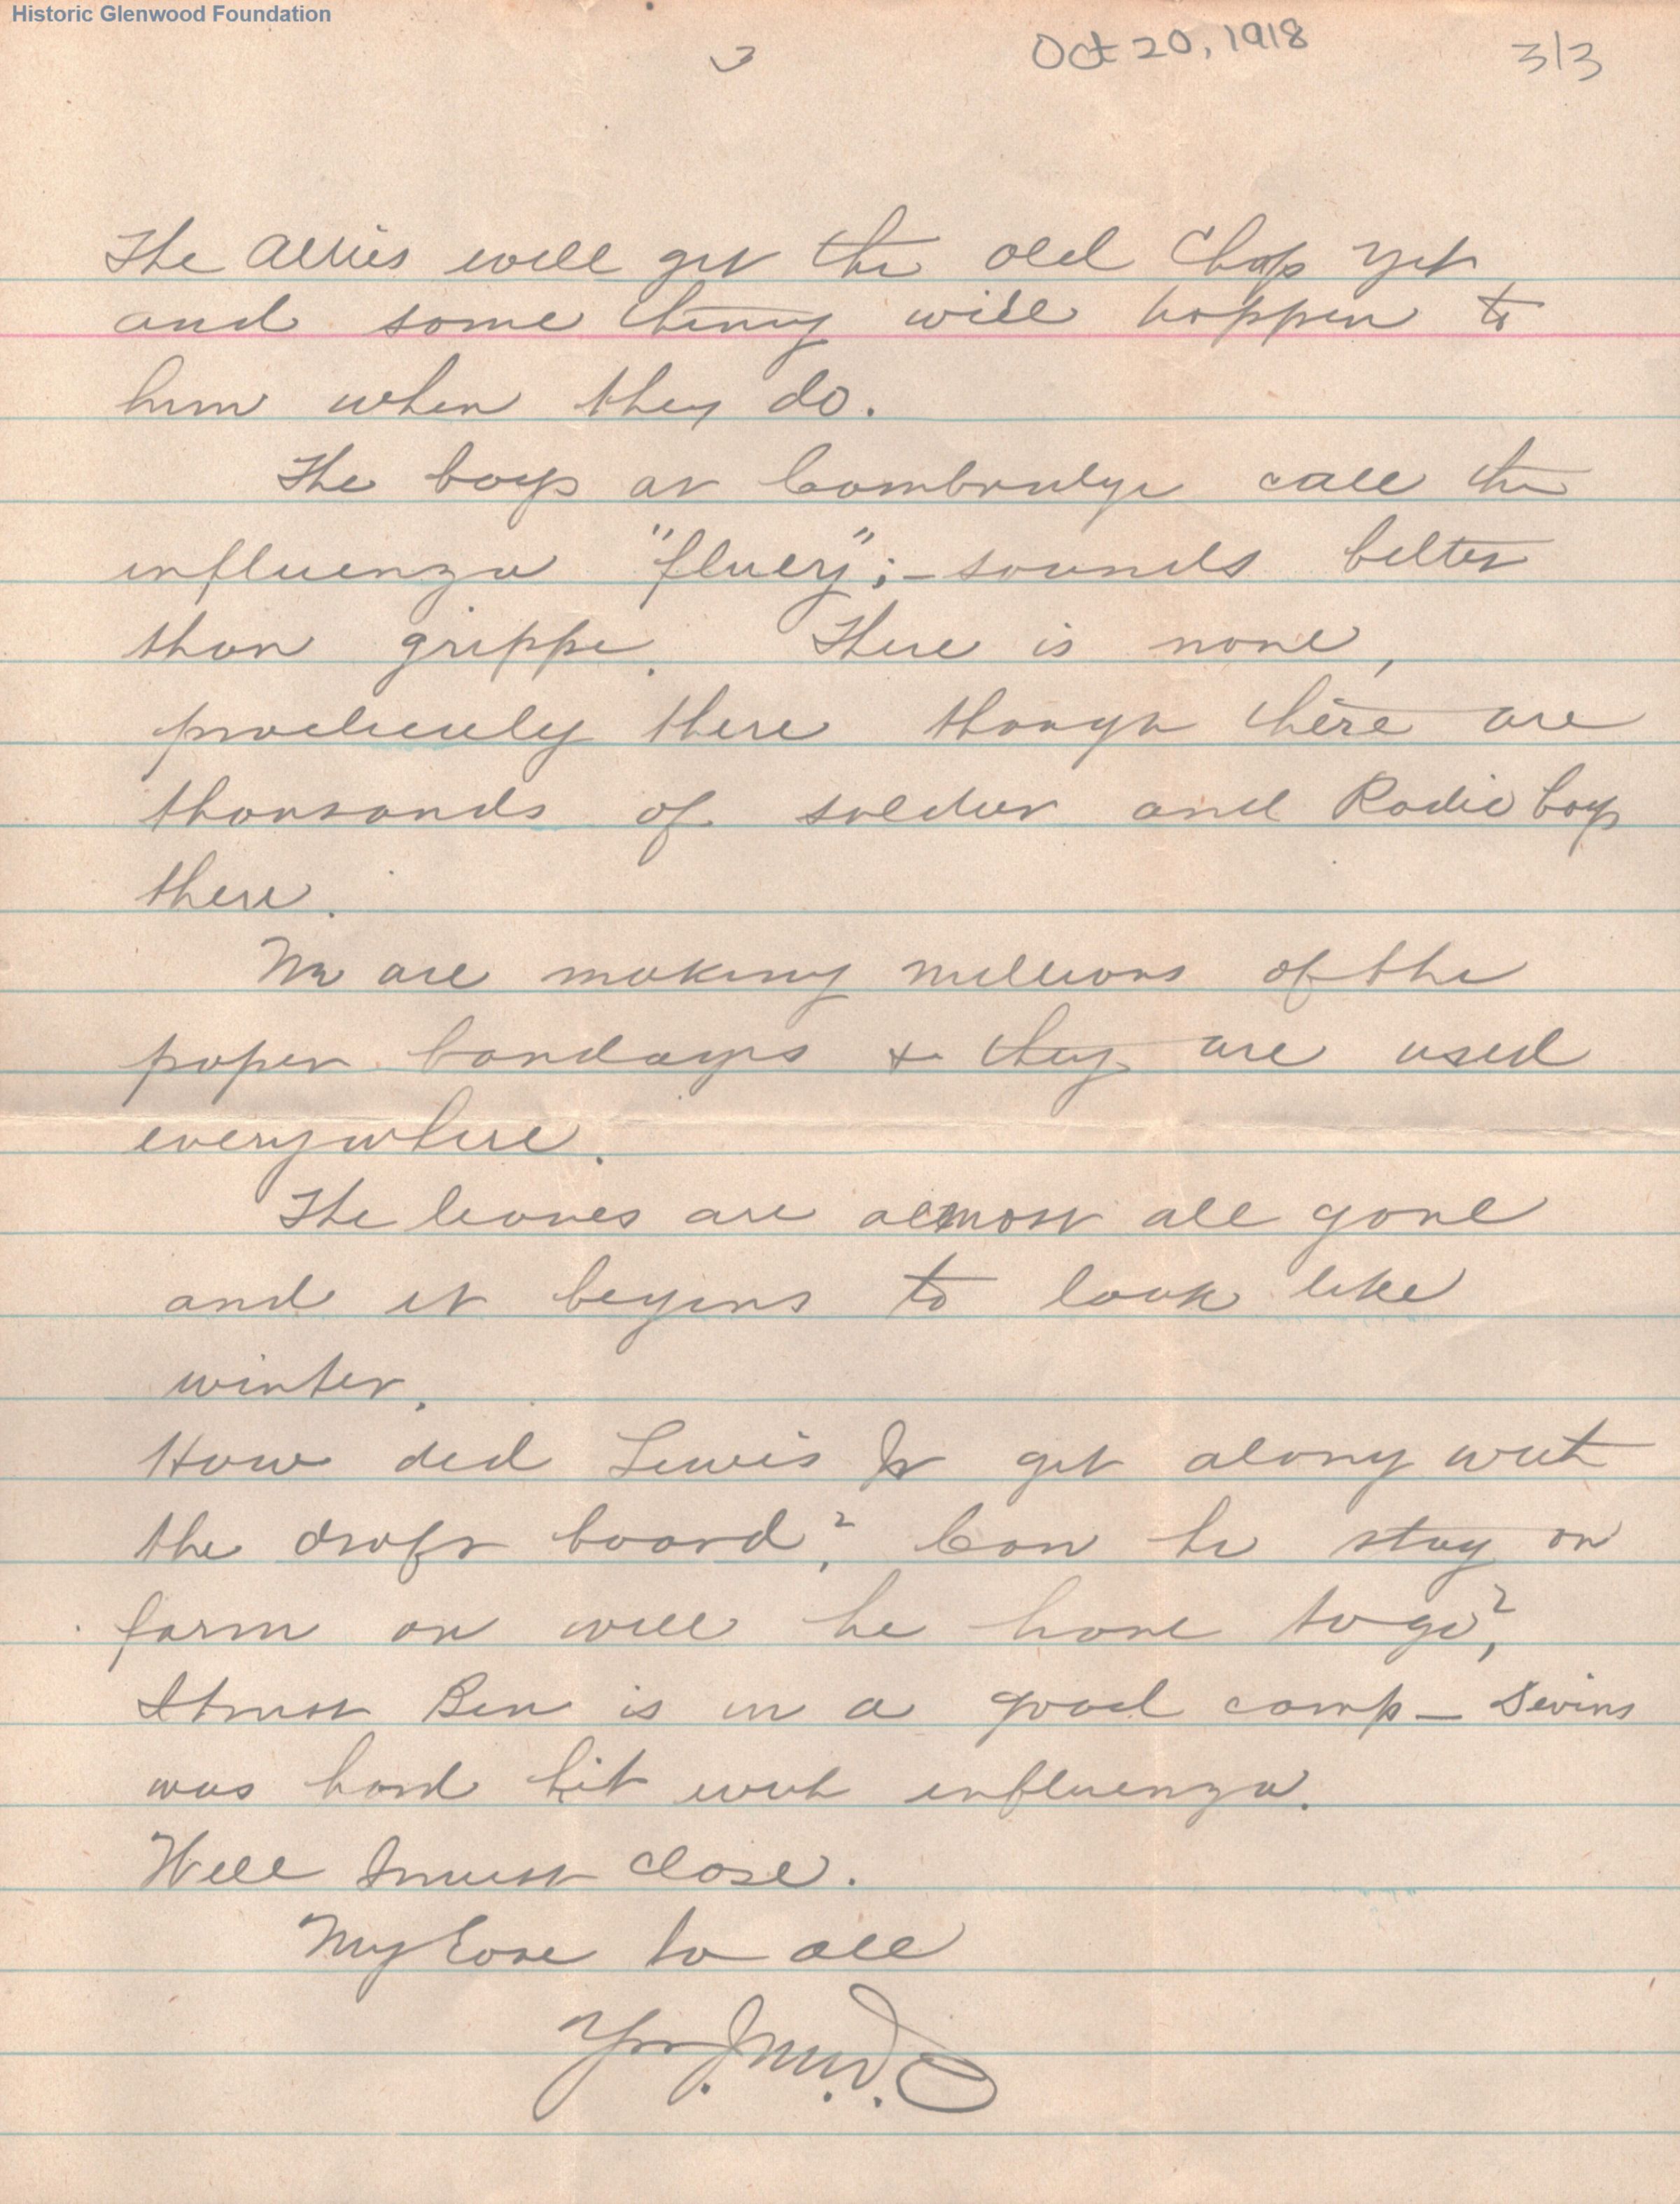 Historic Glenwood Foundation
3 Oct 20, 1918 3/3
The Allies will get the old Chap yet
and some thing will happen to
him when they do.
The boys at Cambridge call the
influenza "fluey"; - sounds better
than grippe. There is none,
practically there though there are
thousands of soldier and Radio boys
there.
We are making millions of the
paper bandages & they are used
everywhere.
The leaves are almost all gone
and it begins to look like
winter.
How did Lewis Jr get along with
the draft board? Can he stay on
farm or will he have to go?
I trust Ben is in a good camp - Devins
was hard hit with influenza.
Well I must close.
My Love to all